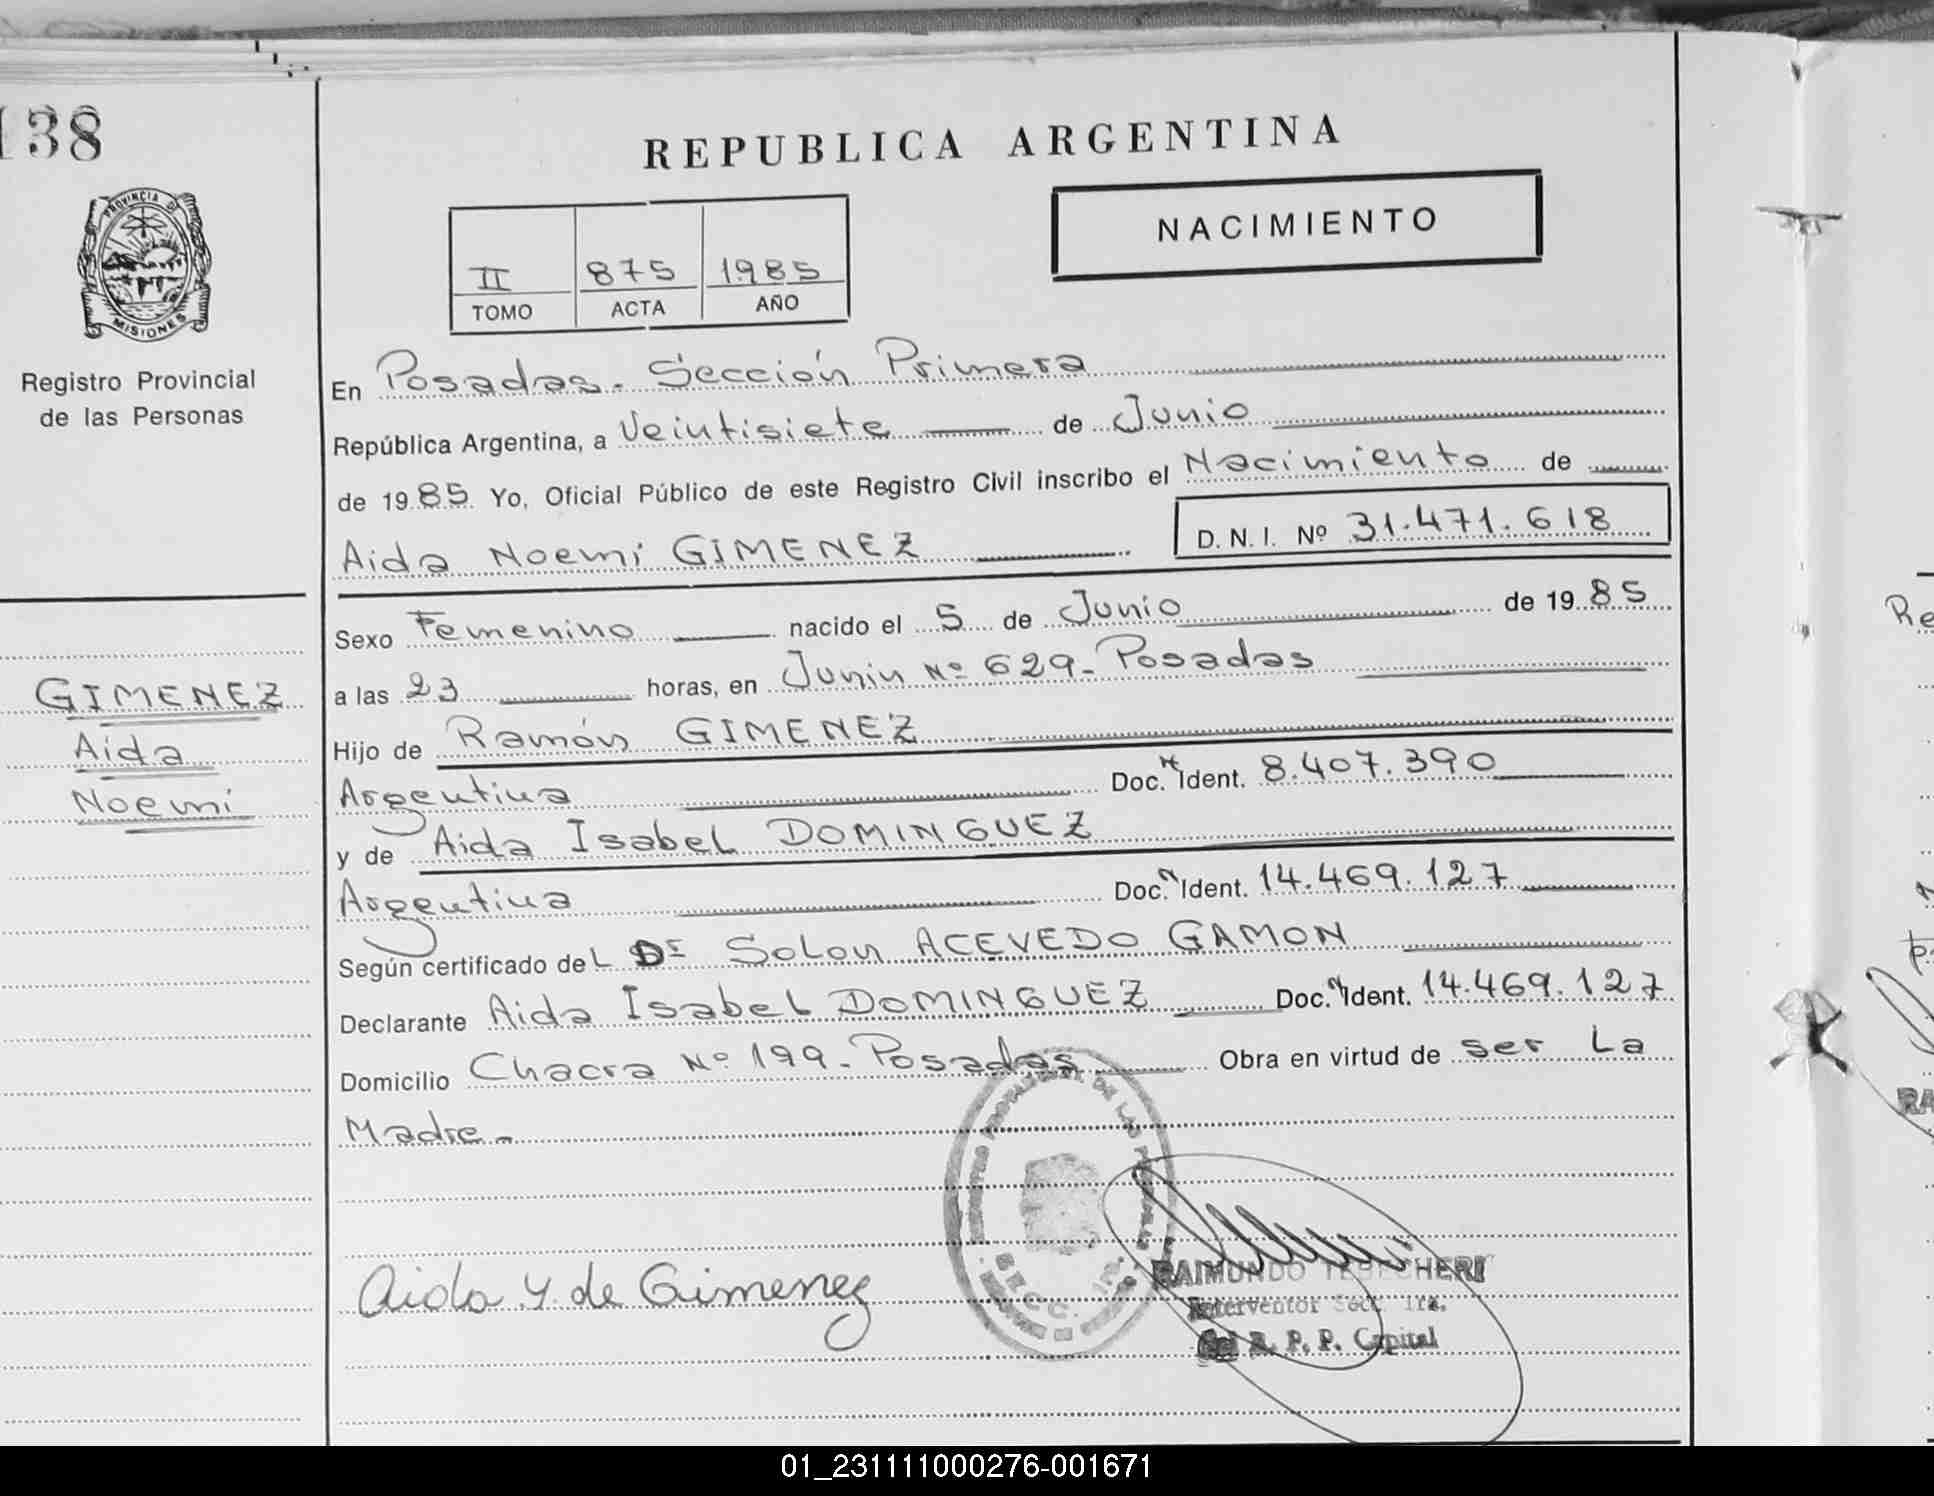 138
PROVINCIA DE
MISIONES
Registro Provincial
de las Personas
GIMENEZ
Aida
Noemi
REPUBLICA ARGENTINA
NACIMIENTO
II 875 1985
TOMO ACTA AÑO
En Posadas. Sección Primera
República Argentina, a Veintisiete de Junio
de 1985 Yo, Oficial Público de este Registro Civil inscribo el Nacimiento de
Aida Noemi GIMENEZ D. N. I. Nº 31.471.618
Sexo Femenino nacido el 5 de Junio de 1985
a las 23 horas, en Junin Nº 629- Posadas
Hijo de Ramón GIMENEZ
Argentina Doc. Ident. 8.407.390
y de Aida Isabel DOMINGUEZ
Argentina Doc. Ident. 14.469.127
Según certificado del Dr Solon ACEVEDO GAMON
Declarante Aida Isabel DOMINGUEZ Doc. Ident. 14.469.127
Domicilio Chacra Nº 199- Posadas Obra en virtud de ser La
Madre-
SECC. 1ra.
Aida Y. de Gimenez
RAIMUNDO
Interventor Secc. 1ra.
R. P. P. Capital
Re
RA
01_231111000276-001671